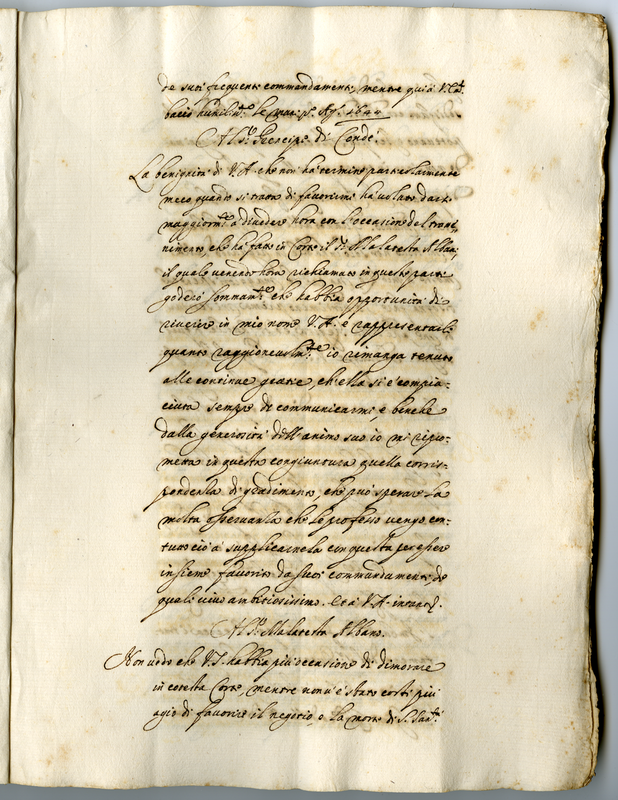 de suoi frequenti commandamenti, mentre qui à V. Em.
bacio humilm.te le mani p.o Ag.o 1644
Al S.r Prencipe di Condé.
La benignità di V. A. che non ha termine particolarmente
meco quando si tratta di favorirmi ha voluto darsi
maggiorm.te a divedere hora con l'occasione del tratte=
nimento, che ha fatto in Corte il S.r Malatesta Albani
il quale venendo hora richiamato in queste parti
goderò sommam.te che habbia opportunità di
riverire in mio nome V. A. e rappresentarle
quanto raggionevolm.te io rimanga tenuto
alle continue gratie, ch'ella si è compia=
ciuta sempre di communicarmi, e benche
dalla generosità dell'animo suo io mi ripro=
metta in questa congiuntura quella corris=
pondenza di gradimento, che può sperare la
molta osservanza che le professo vengo con
tutto ciò a supplicarnela con questa per esser
insieme favorito da suoi commandamenti de
quali vivo ambitiosissimo. Et à V. A. intanto
Al S.r Malatesta Albani.
Non vedo che V. S. habbia più occasione di dimorare
in cotesta Corte, mentre non v'è stato costì più
agio di favorire il negotio, e la morte di S. San.tà